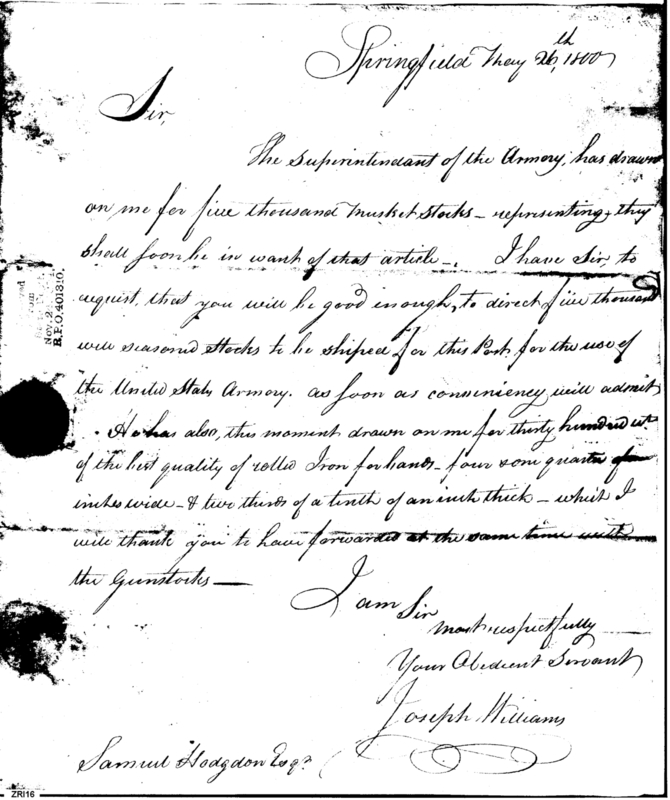 Springfield May 26th, 1800
Sir,
The Superintendant of the Armory, has drawn
on me for five thousand Musket Stocks - representing they
shall soon be in want of that article -. I have Sir, to
request, that you will be good enough, to direct five thousand
well seasoned Stocks to be shiped for this Post, for the use of
the United States Armory. as soon as conveniency will admit
. He has also, this moment drawn on me for thirty hundred wt.
of the best quality of rolled Iron for bands - four quarter of
inches wide - & two thirds of a tenth of an inch thick - which I
will thank you to have forwarded at the same time with
the Gunstocks —
I am Sir
most respectfully
Your Obedient Servant
Joseph Williams
Samuel Hodgdon Esqr.
Nov. 2
B.P.O. 401310.
ZRI16